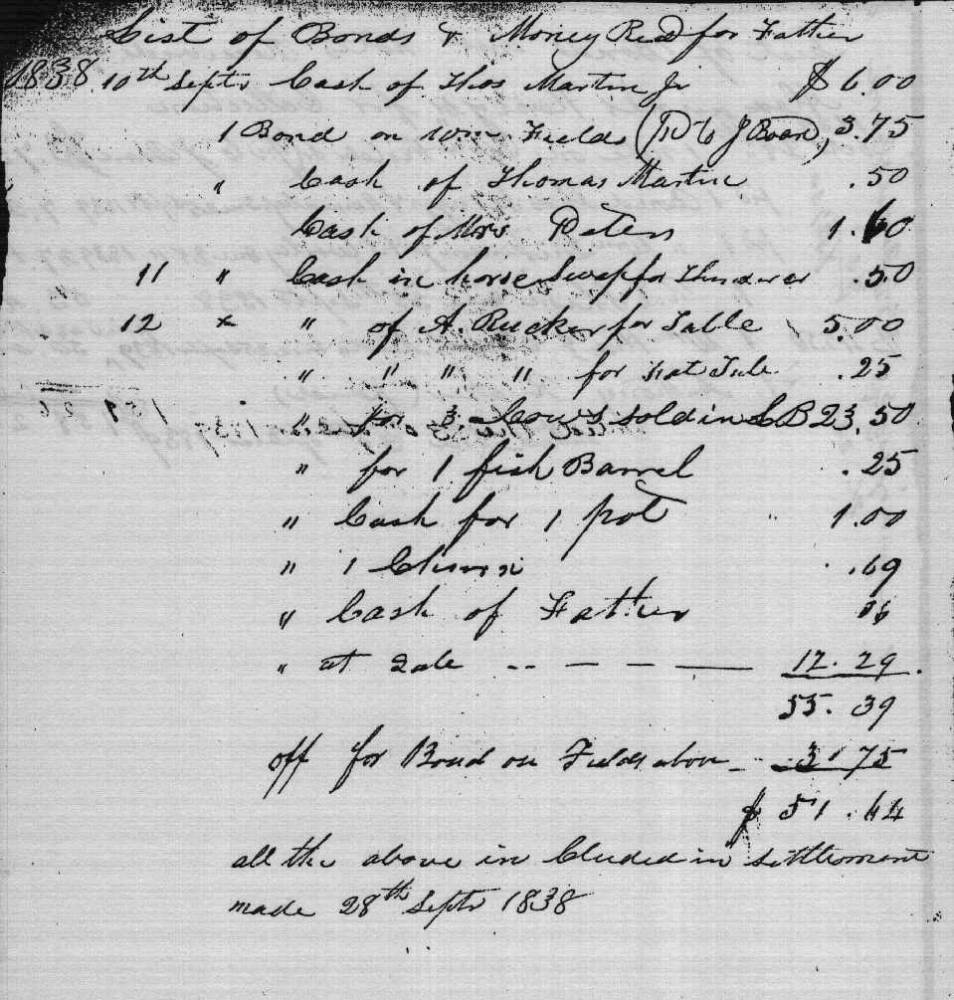 List of Bonds & Money Recd for Father
1838 10th Septr Cash of Thos Martin Jr $ 6.00
1 Bond on Wm Fields ( 3.75
" Cash of Thomas Martin .50
Cash of Mrs Peters 1.60
11 " Cash in horse Swap for .50
12 " " of A. Rucker for Table 5.00
" " " " for .25
" for 3 Cows sold in L.B 23.50
" for 1 fish Barrel .25
" Cash for 1 pot 1.00
" 1 Churn .69
" Cash of Father 06
" at Sale -- — — —— 12.29.
55.39
off for Bond on Fields above 3.75
$ 51.64
all the above in Cluded in Settlement
made 28th Septr 1838